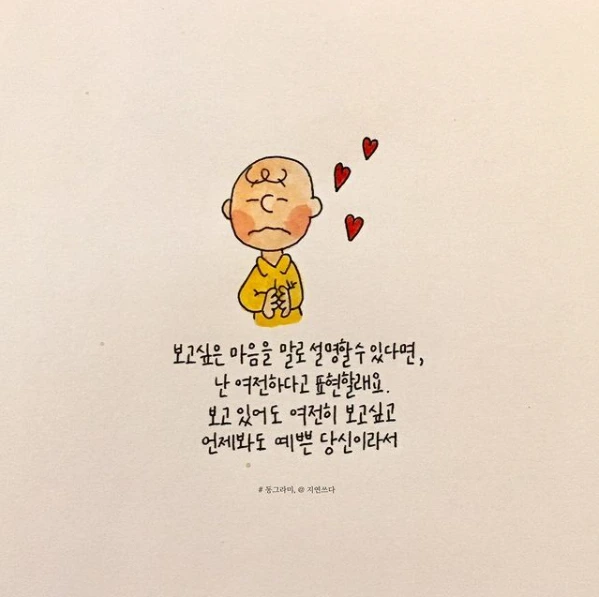 보고싶은 마음을 말로 설명할수 있다면,
난 여전하다고 표현할래요.
보고 있어도 여전히 보고싶고
언제봐도 예쁜 당신이라서
# 동그라미, @ 지연쓰다